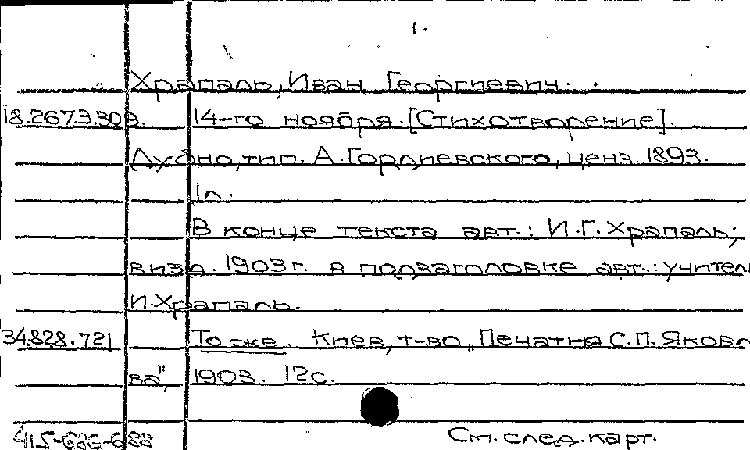 1.
Храпаль, Иван Георгиевич.
18.267.3.309. 14-го ноября. [Стихотворение].
Лубно, тип. А. Гордиевского, ценз. 1893.
1л.
В конце текста авт.: И.Г. Храпаль;
в изд. 1903 г. в подзаголовке авт.: учитель
И. Храпаль.
34.828.721 То же. Киев, т-во „Печатня С.П. Яковле
ва", 1903. 12с.
415-686-688 См. след. карт.